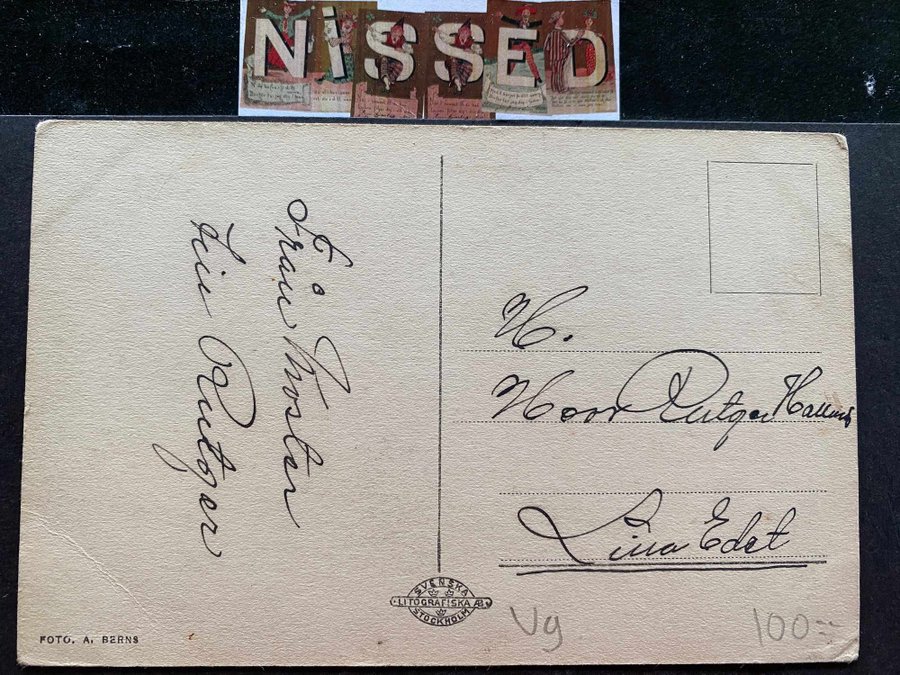 NiSSED
Från Moster
till Rutger
H.
Herr Rutger
Lilla Edet
SVENSKA
LITOGRAFISKA AB
STOCKHOLM
FOTO. A. BERNS
Vg
100:-